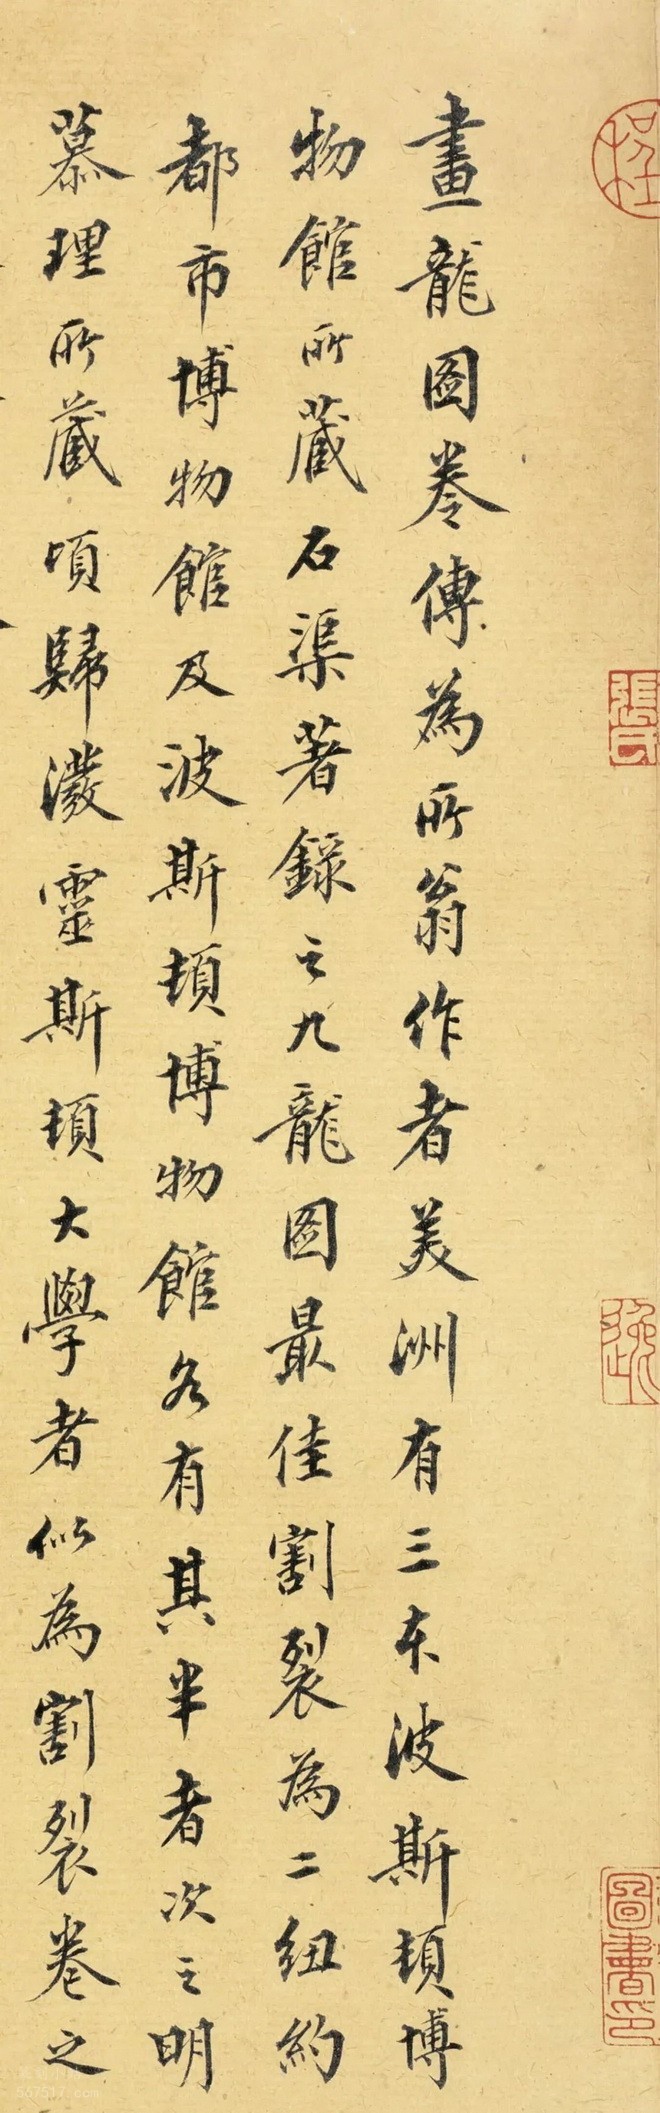 畫龍圖卷傳為所翁作者美洲有三本波斯頓博
物館所藏石渠著錄之九龍圖最佳割裂為二紐約
都市博物館及波斯頓博物館各有其半者次之明
慕理所藏頃歸潑靈斯頓大學者似為割裂卷之
張氏
圖書印
557517.com